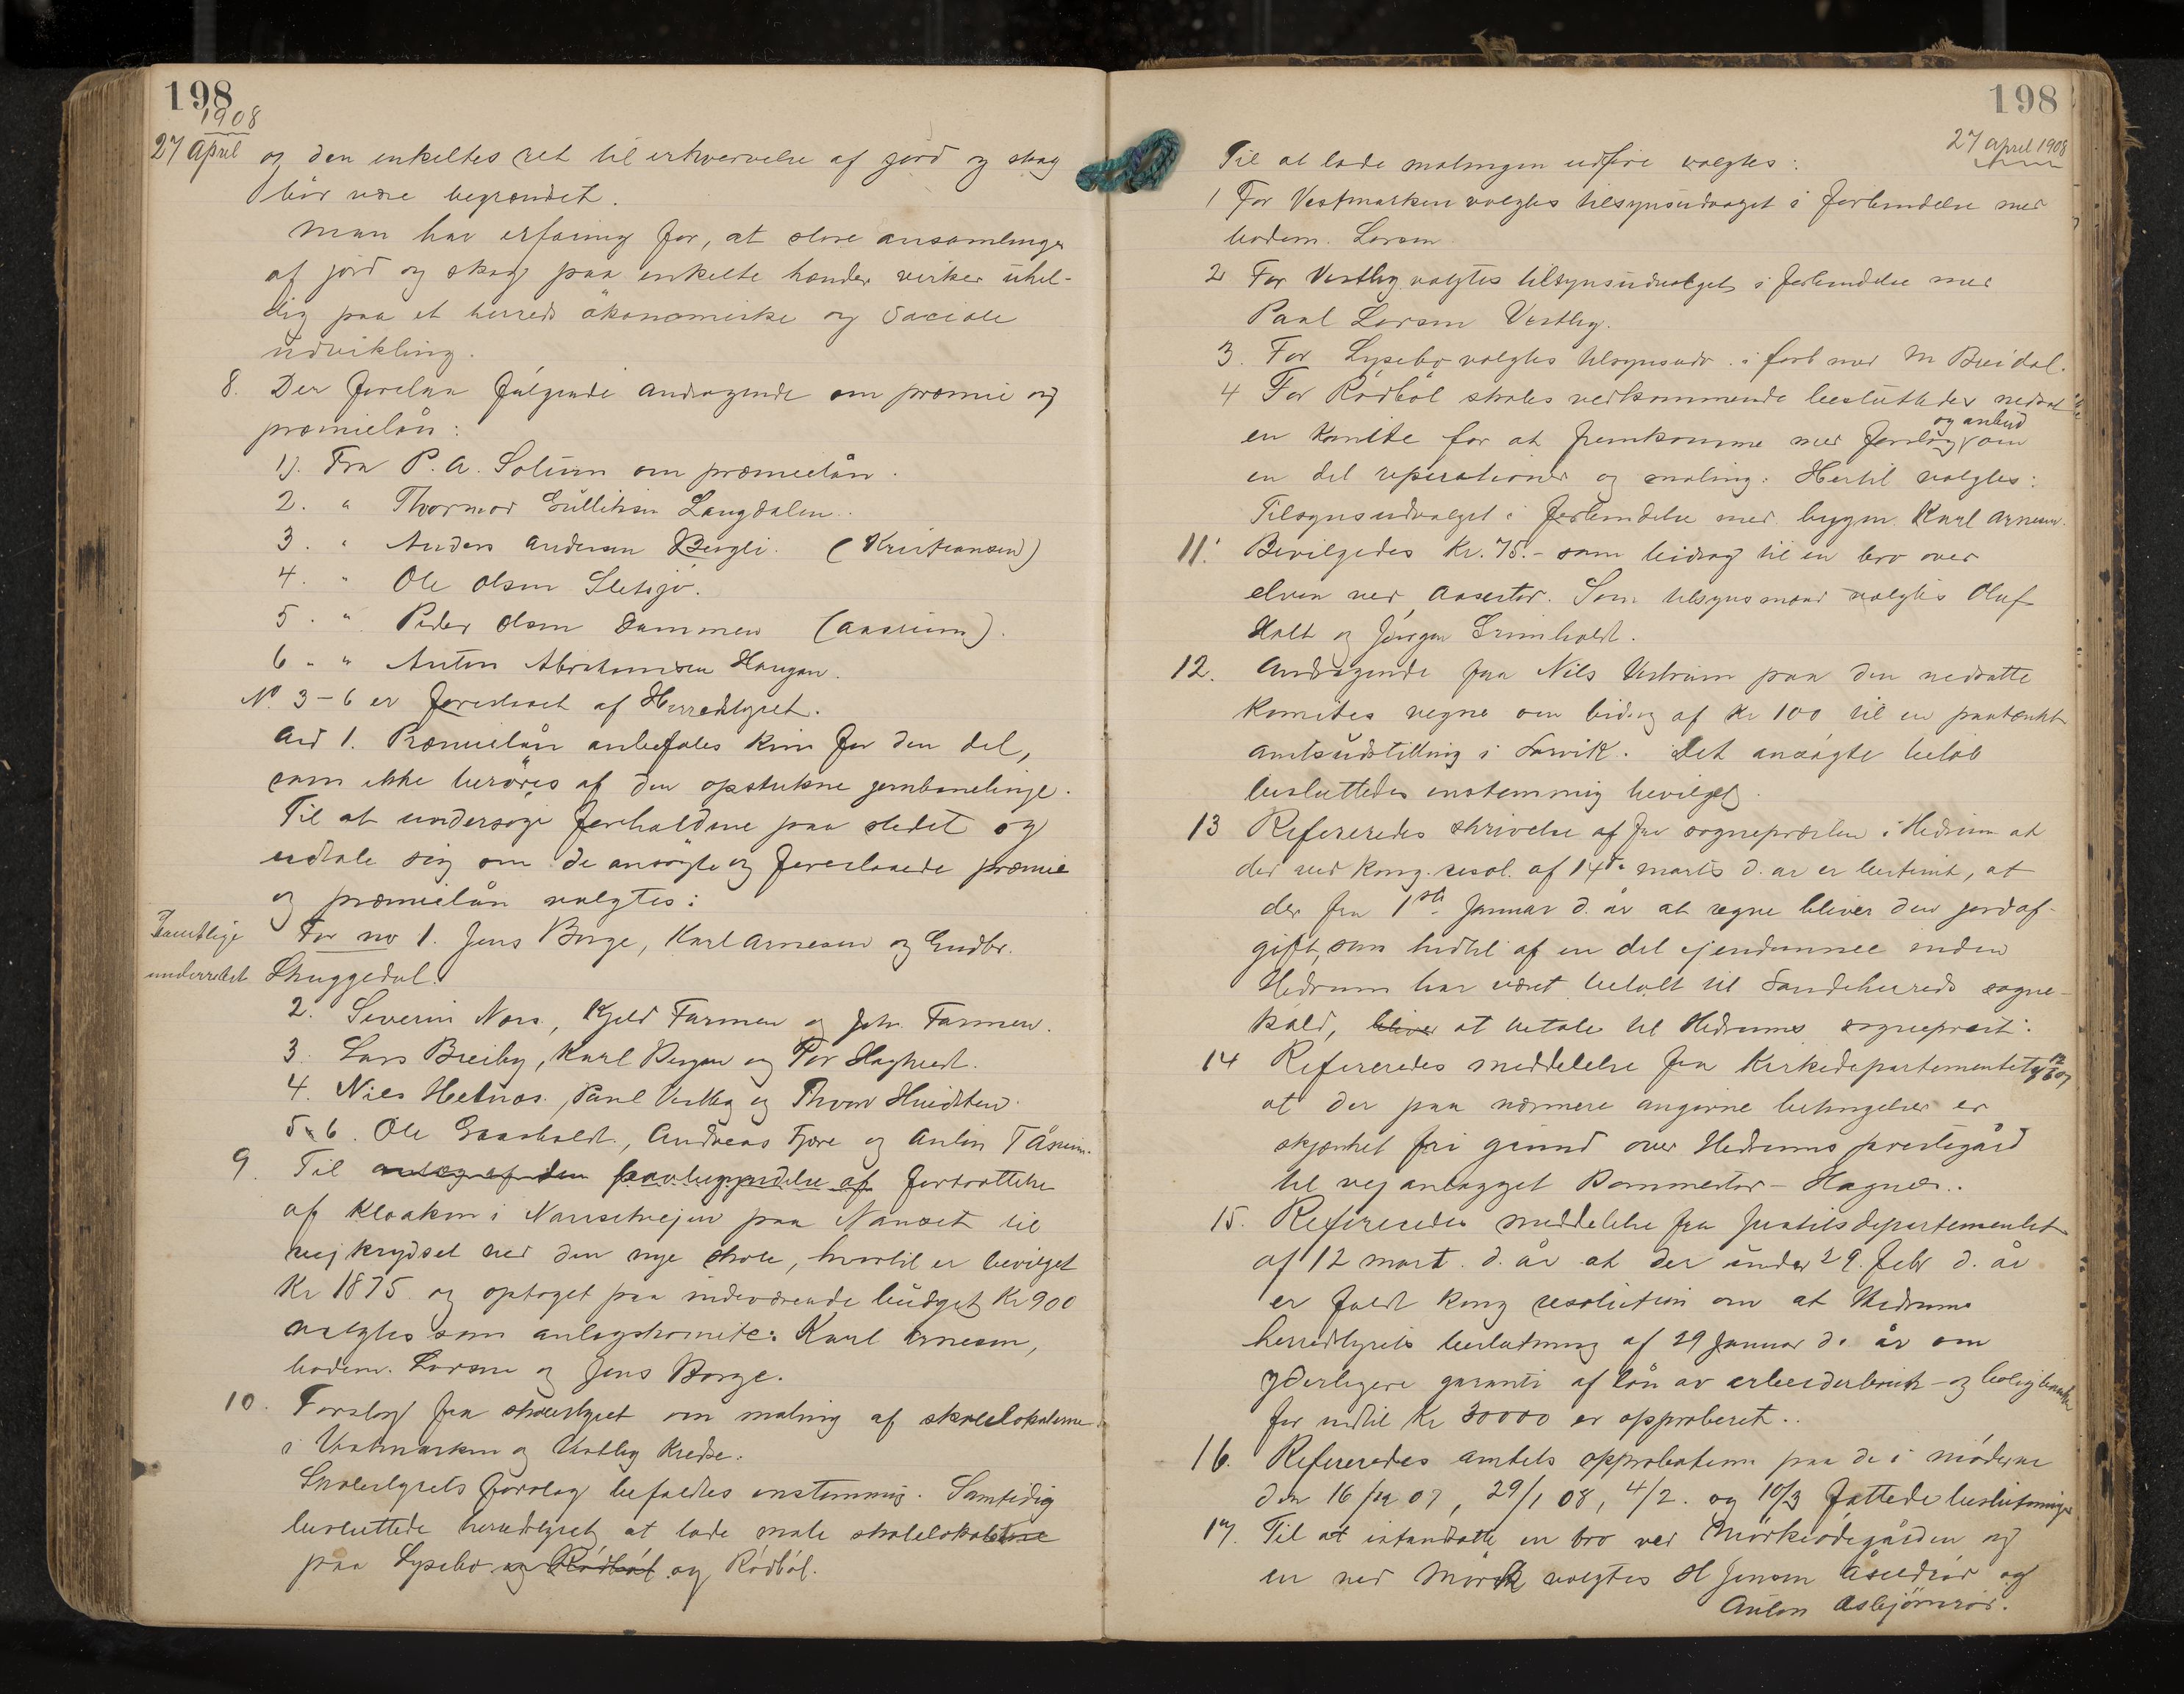 198
1908
27 April og den enkeltes ret til erhvervelse af jord og skog
bör være begrændset.
Man har erfaring for, at store ansamlinger
af jord og skog paa enkelte hænder virker uhel-
dig paa et herreds ökonomiske og sociale
udvikling.
8. Der forelaa fölgende andragende om præmie og
præmielån:
1). Fra P. A. Solum om præmielån.
2. " Thormod Gullichsen Langdalen.
3. " Anders Andersen Bergli. (Kristiansen)
4. " Ole Olsen Sletsjö.
5. " Peder Olsen Dammen (Aasrum).
6. " Anton Abrahamsen Haugen.
No 3-6 er foreslaaet af Herredstyret.
Ad 1. Præmielån anbefales kun for den del,
som ikke beröres af den opstukne jernbanelinje.
Til at undersöge forholdene paa stedet og
udtale sig om de ansögte og foreslaaede præmie
og præmielån valgtes:
Samtlige underrettet
For no 1. Jens Borge, Karl Arnesen og Gudbr.
Skuggedal.
2. Severin Nors, Kjeld Farmen og Joh. Farmen.
3. Lars Breiby, Karl Bergan og Per Haghvedt.
4. Nils Helnæs, Paul Vestby og Thron Hvidsten.
5 & 6. Ole Graaholdt, Andreas Fjære og Anton Tåsrum.
9. Til anlæg af den paabegyndelse af fortsættelse
af kloaken i Nansetvejen paa Nanset til
vejkrydset ved den nye skole, hvortil er bevilget
Kr 1875 og optaget paa indeværende budget Kr 900
valgtes som anlægskomite: Karl Arnesen,
bødem. Larsen og Jens Borge.
10. Forslag fra skolestyret om maling af skolelokalerne
i Vestmarken og Vestby kredse.
Skolestyrets forslag befaldtes enstemmig. Samtidig
besluttede herredstyret at lade male skolelokalerne
paa Lysebo og Rödböl og Rödböl.
198
27 april 1908
Til at lade malingen udföre valgtes:
1 For Vestmarken valgtes tilsynsudvalget i forbindelse med
bødem. Larsen
2 For Vestby valgtes tilsynsudvalget i forbindelse med
Paul Larsen Vestby.
3. For Lysebo valgtes tilsynsudv. i forb med M Bredal.
4 For Rödböl skoles vedkommende besluttedes nedsat
en komite for at fremkomme med forslag og anbud om
en del reparationer og maling. Hertil valgtes:
Tilsynsudvalget i forbindelse med bygm. Karl Arnesen.
11. Bevilgedes Kr. 75.- som bidrag til en bro over
elven ved Aasestor. Som tilsynsmænd valgtes Oluf
Holt og Jörgen Grinholdt.
12. Andragende fra Nils Vestrum paa den nedsatte
komites vegne om bidrag af Kr 100 til en paatænkt
amtsudstilling i Larvik. Det ansögte belöb
besluttedes enstemmig bevilget.
13 Refereredes skrivelse af fra sognepræsten i Hedrum at
der ved kong. resol. af 14de marts d. aar er bestemt, at
der fra 1ste Januar d. år at regne bliver den jordaf-
gift, som hidtil af en del ejendomme inden
Hedrum har været betalt til Sandeherreds sogne-
kald, bliver at betale til Hedrums sogneprest.
14 Refereredes meddelelse fra Kirkedepartementet
at der paa nærmere angivne betingelser er
skjænket fri grund over Hedrums prestegård
til vejanlægget Bommestor - Hagnes.
15. Refereredes meddelelse fra Justitsdepartementet
af 12 mart. d. år at der under 29. febr d. år
er faldt kong resolution om at Hedrums
herredstyrets beslutning af 29 Januar d. år om
yderligere garanti af lån av arbeiderbruk- og boligbanken
for indtil Kr 30000 er approberet.
16. Refereredes amtets approbation paa de i möderne
den 16/12 07, 29/1 08, 4/2. og 10/3 fattede beslutninger
17. Til at istandsætte en bro ved Mörkeödegården og
en ved Mörk valgtes H Jensen Åsildröd og
Anton Asbjörnröd.